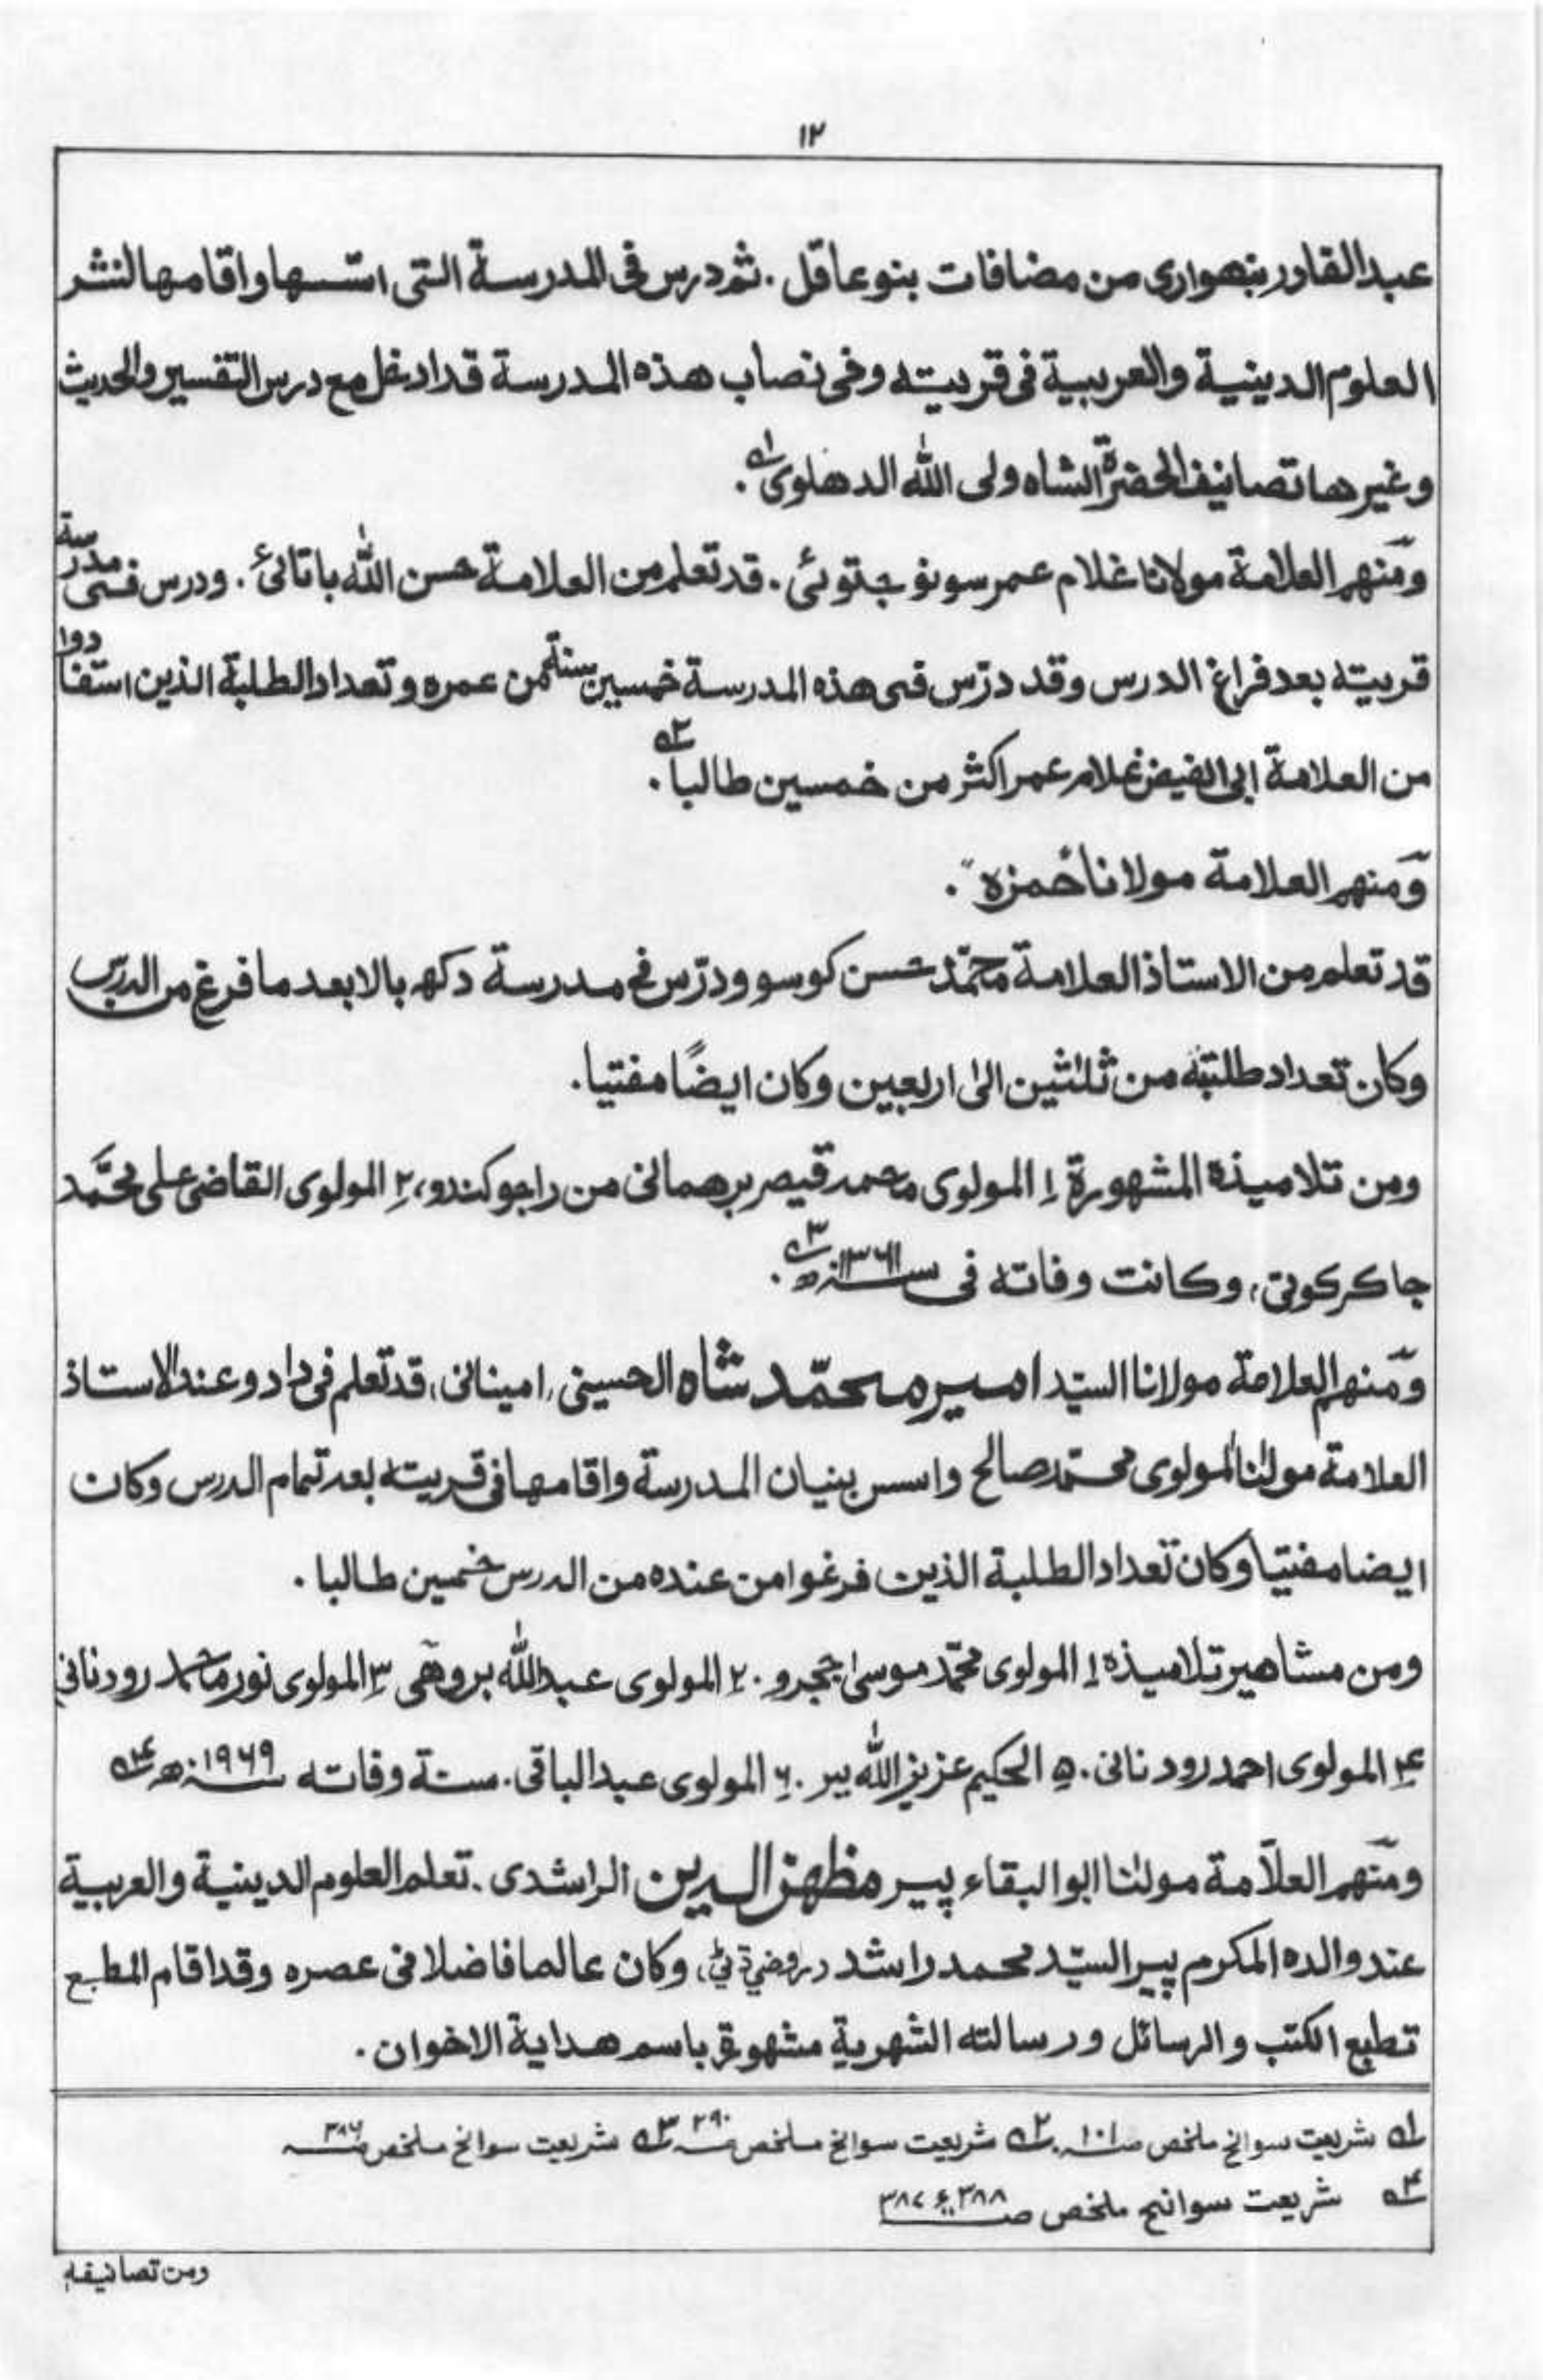 ١٢
عبدالقادر بنهواری من مضافات بنوعاقل . ثم درس فی المدرسة التی اسّسها واقامها لنشر
العلوم الدينية والعربية فی قريته وفی نصاب هذه المدرسة قد ادخل مع درس التفسير والحديث
وغيرها تصانيف الحضرة الشاه ولی اللّٰه الدهلوی ١ه .
ومنهم العلامة مولانا غلام عمر سونو جتوئی . قد تعلم من العلامة حسن اللّٰه باتائیؒ . ودرس فی مدرسة
قريته بعد فراغ الدرس وقد درّس فی هذه المدرسة خمسين سنة من عمره وتعداد الطلبة الذين استفادوا
من العلامة ابی الفيض غلام عمر اكثر من خمسين طالبا ٢ه .
ومنهم العلامة مولانا حمزه .
قد تعلم من الاستاذ العلامة محمّد حسن كوسو ودرّس فی مدرسة دكهہ بالا بعد ما فرغ من الدرس
وكان تعداد طلبته من ثلٰثين الیٰ اربعين وكان ايضًا مفتيا .
ومن تلاميذة المشهورة ١ المولوی محمد قيصر برهمانی من راجو كندو، ٢ المولوی القاضی علی محمَّد
جاكركوتی، وكانت وفاته فی سنة ١٣٦١ه ٣ه .
ومنهم العلامة مولانا السيّد امير محمّد شاه الحسينی، امينانی، قد تعلم فی دادو عند الاستاذ
العلامة مولٰنا المولوی محمّد صالح واسس بنيان المدرسة واقامها فی قريته بعد تمام الدرس وكان
ايضا مفتيا وكان تعداد الطلبة الذين فرغوا من عنده من الدرس خمسين طالبا .
ومن مشاهير تلاميذه ١ المولوی محمّد موسیٰ ججرو . ٢ المولوی عبداللّٰه بروهی ٣ المولوی نور محمد رودنانی
٤ المولوی احمد رودنانی . ٥ الحكيم عزيز اللّٰه بير . ٦ المولوی عبدالباقی . سنة وفاته سنة ١٩٦٩ه ٤ه
ومنهم العلّامة مولٰنا ابوالبقاء پير مظهر الدين الراشدی . تعلم العلوم الدينية والعربية
عند والده المكرم پير السيّد محمد راشد ، وكان عالما فاضلا فی عصره وقد اقام المطبع
تطبع الكتب والرسائل ورسالته الشهرية مشهورة باسم هداية الاخوان .
١ه شريعت سوانح ملخص صـ١٠١ . ٢ه شريعت سوانح ملخص صـ٢٩٠ ٣ه شريعت سوانح ملخص صـ٣٨٦
٤ه شريعت سوانح ملخص صـ٣٨٨ء٣٨٧
ومن تصانيفه